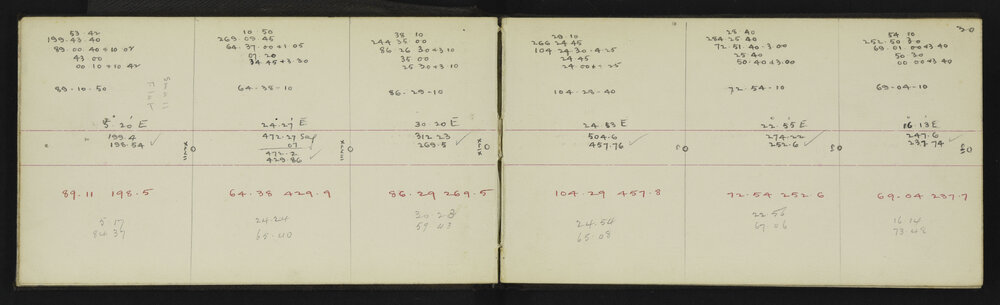 53 42
199.43.40
89.00.40+10.02
43 00
00 10+10.42
89-10-50
5.20 E
199.4
198.54
89.11 198.5
5.17
84.37
10 50
269.09.45
64.37.00+1.05
07 20
34 45+3.30
64-38-10
24.27 E
472.27
07
472.2
429.86
64.38 429.9
24.24
65.40
38 10
244 35 00
86 26 30+3 10
35 00
25 30+3 10
86-29-10
30.20 E
312 23
269.5
86.29 269.5
30.28
59 43
29 10
266 24 45
104 24 30-4.25
24 45
24-00+-25
104-28-40
24.53 E
504.6
457.76
£0
104.29 457.8
24.54
65.08
25.40
254 25 40
72.51.40-3.00
25 40
50.40+3.00
72.54-10
22.55 E
274.22
252.6
£0
72.54 252.6
22 56
67 06
20
54 10
252.50 30
69.01 00+3 40
50 30
00 00+3 40
69-04-10
16.13 E
247.6
237.74
£0
69.04 237.7
16.14
73 48